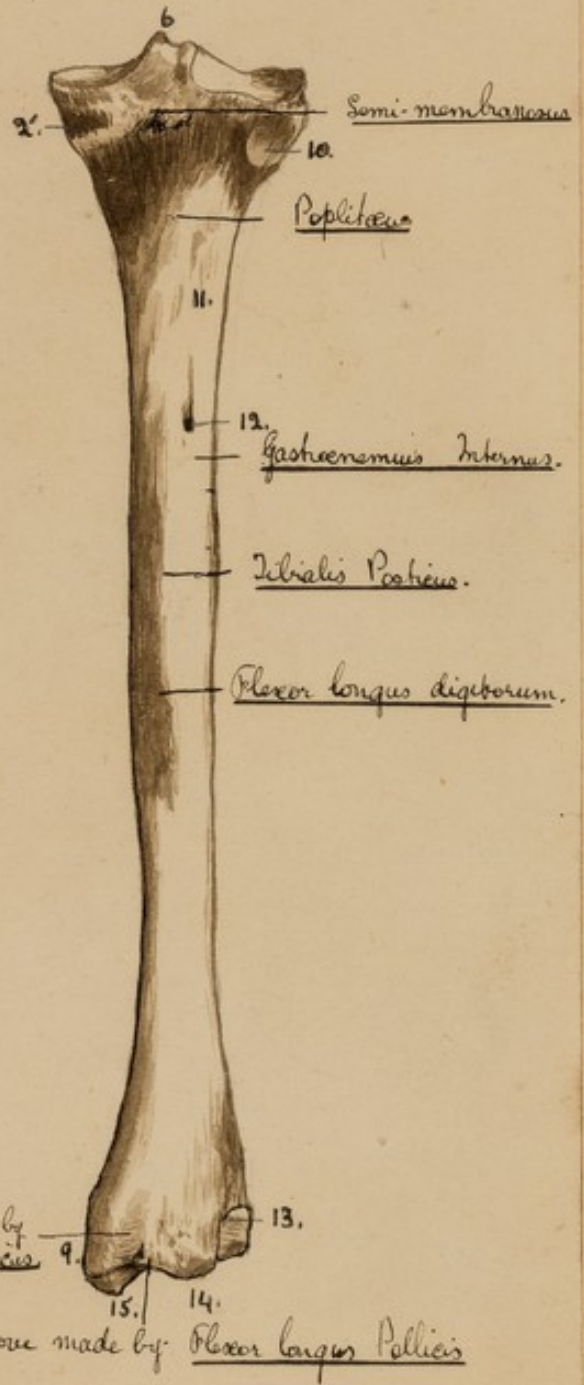 6
Semi-membranosus
2'.
10.
Poplitæus
11.
12.
Gastrocnemius Internus.
Tibialis Posticus.
Flexor longus digitorum.
by
13.
9.
15.
14.
made by Flexor longus Pollicis